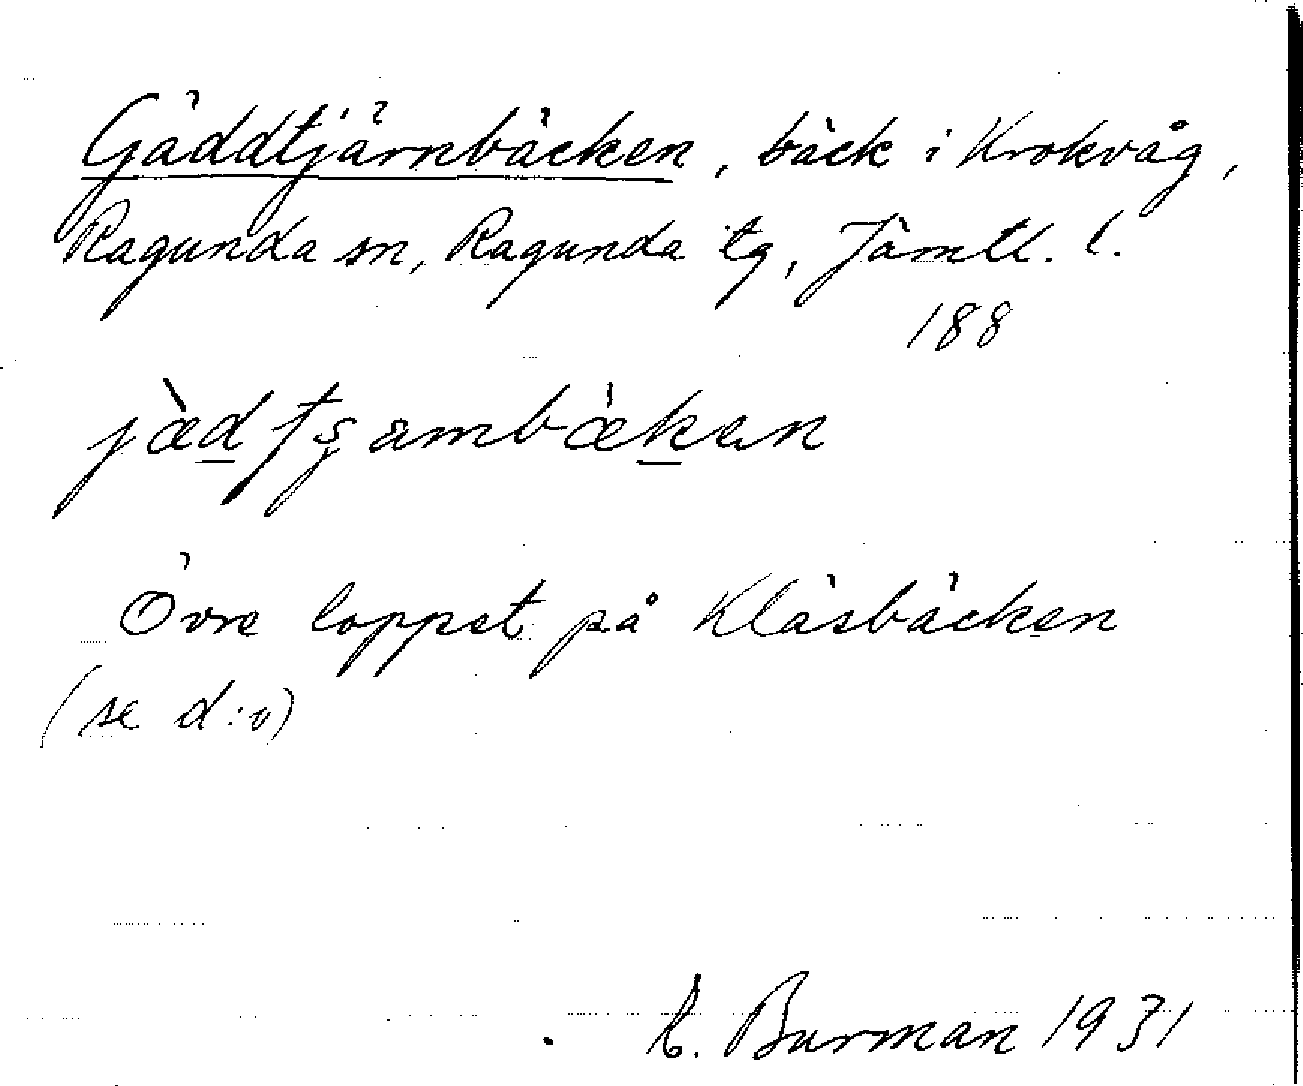 Gäddtjärnbäcken, bäck i Krokvåg,
Ragunda sn, Ragunda tg, Jämtl. l.
188
Övre loppet på Kläsbäcken
(se d:o)
Burman 1931